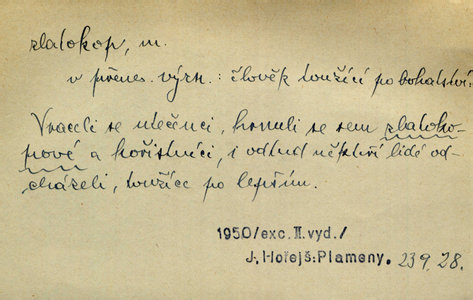 zlatokop, m.
v přenes. význ.: člověk toužící po bohatství:
Vraceli se utečenci, hrnuli se sem zlatoko-
pové a kořistníci, i odtud někteří lidé od-
cházeli, toužíce po lepším.
1950/exc.II.vyd./
J.Hořejš:Plameny. 239. 28.